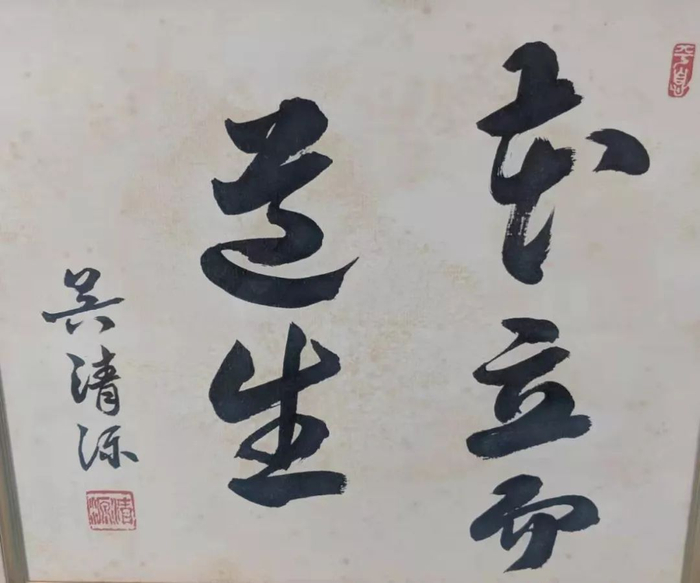 本立而
道生
吴清源